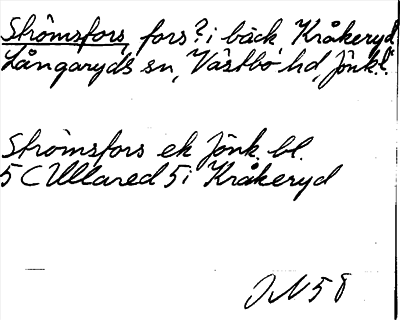 Strömsfors, fors? i bäck Kråkeryd
Långaryds sn, Västbo hd, Jönk.l.
Strömsfors ek Jönk. bl.
5 C Ullared 5 i Kråkeryd
58